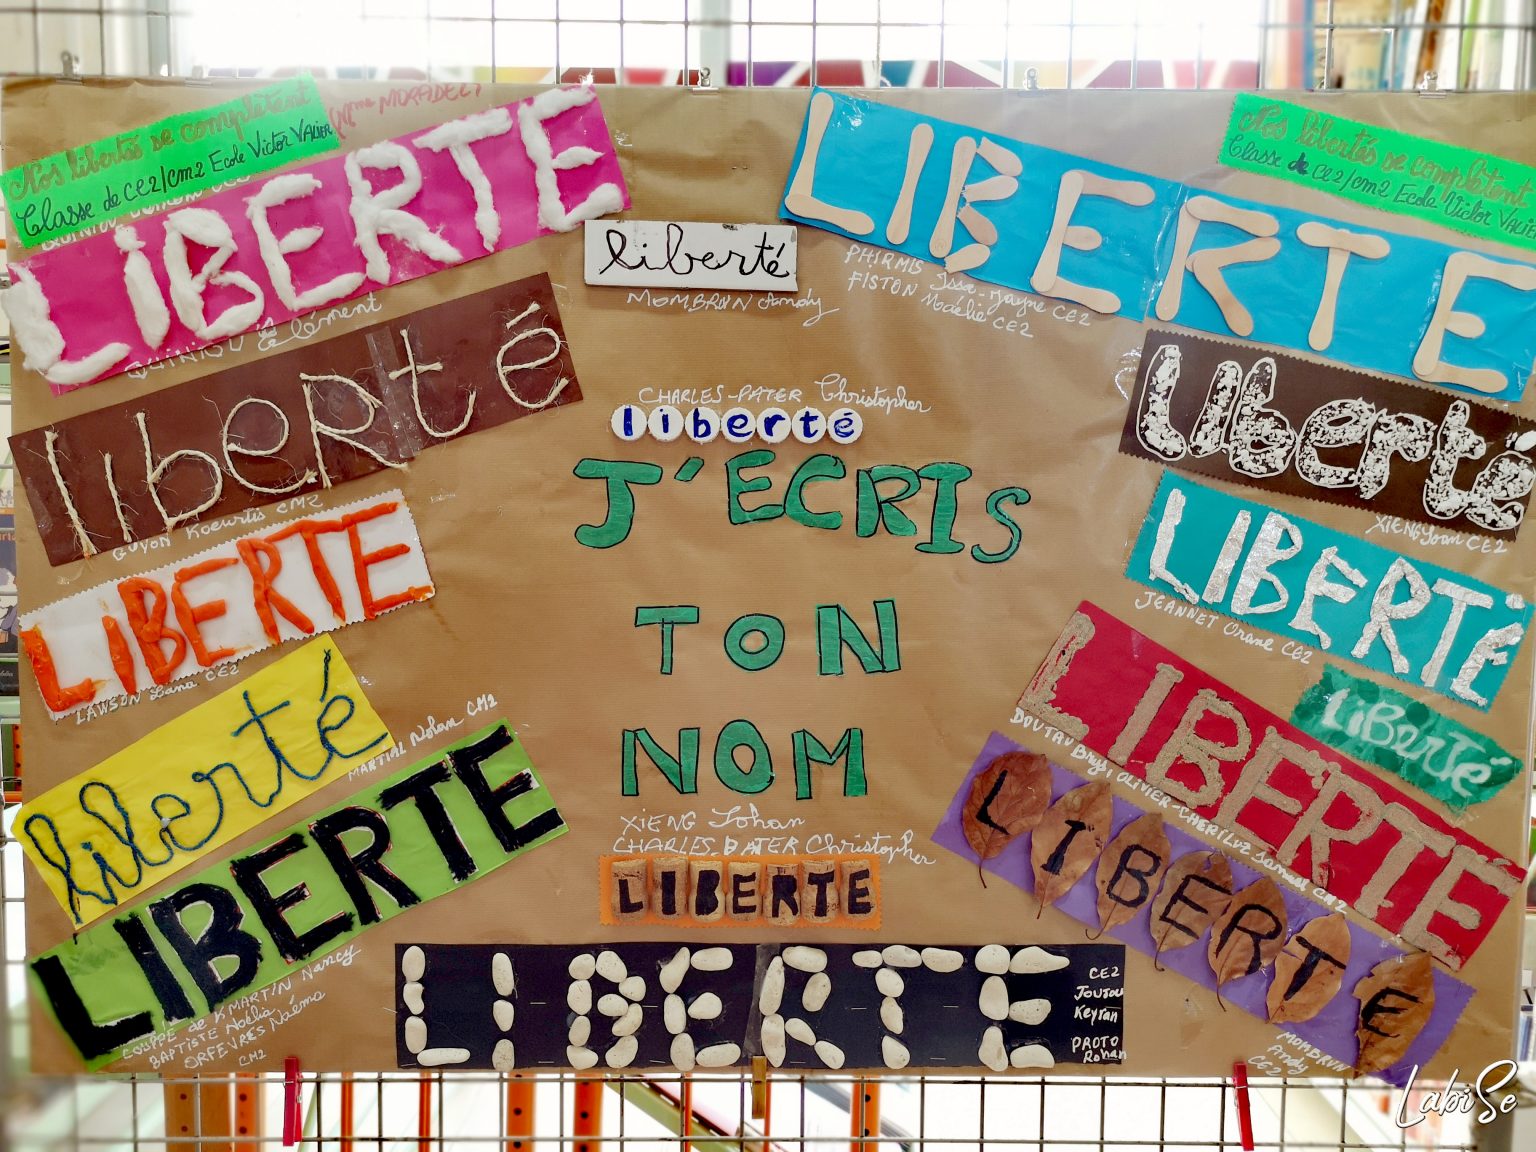 Nos libertés se complètent
Classe de CE2/CM2 Ecole Victor VALIER
Mme MORADEL
LiBERTE
QUINIOU Clément
libeRté
GUYON Kocurtis CM2
LiBERTE
LAWSON Lana CE2
liberté
MARTIAL Nolan CM2
LIBERTE
COUPPÉ de K/MARTIN Nancy
BAPTISTE Noélia
ORFEVRES Naéma
CM2
liberté
MOMBRUN Andy
CHARLES-PATER Christopher
liberté
J'ECRIS
TON
NOM
XIENG Johan
CHARLES-PATER Christopher
LIBERTE
LIBERTE
CE2
JOUJOU
Keyran
PROTO
Rohan
Nos libertés se complètent
Classe de CE2/CM2 Ecole Victor VALIER
LIBERTE
PHIRMIS Issa-Jayne CE2
FISTON Maélie CE2
Liberté
XIENG Yoan CE2
LIBERTÉ
JEANNET Orane CE2
LiBerté
LIBERTE
DOUTAU Brys, OLIVIER-CHERILUZ Samuel CM2
LIBERTE
MOMBRUN
Andy
CE2
LabiSe